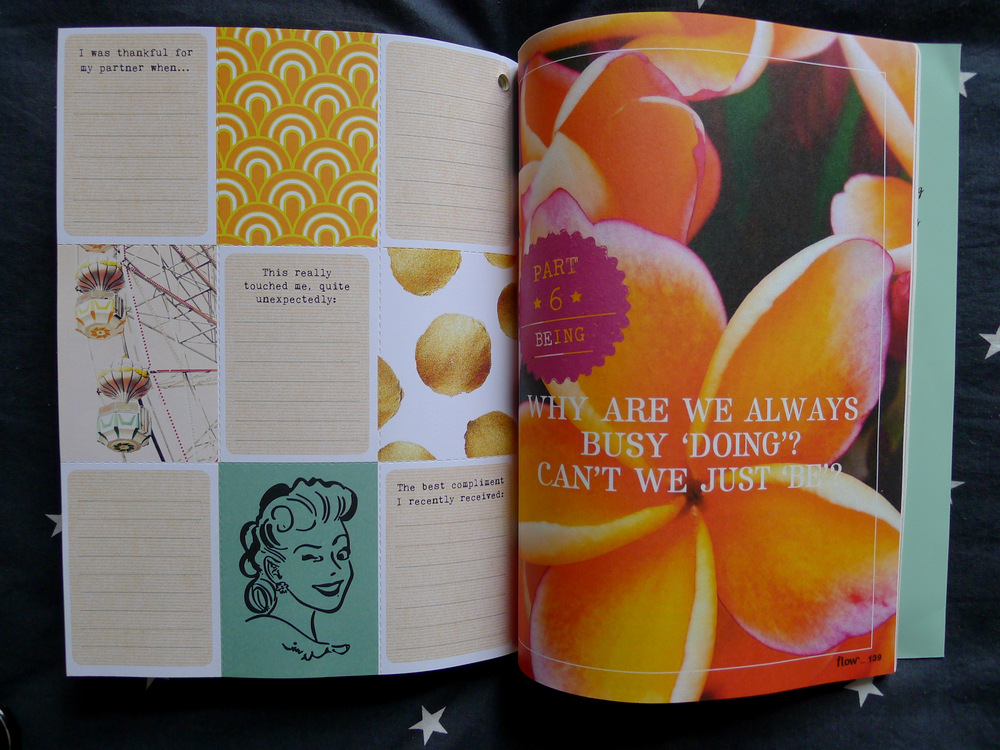 I was thankful for
my partner when...
This really
touched me, quite
unexpectedly:
The best compliment
I recently received:
PART
6
BEING
WHY ARE WE ALWAYS
BUSY ‘DOING’?
CAN’T WE JUST ‘BE’?
flow_139